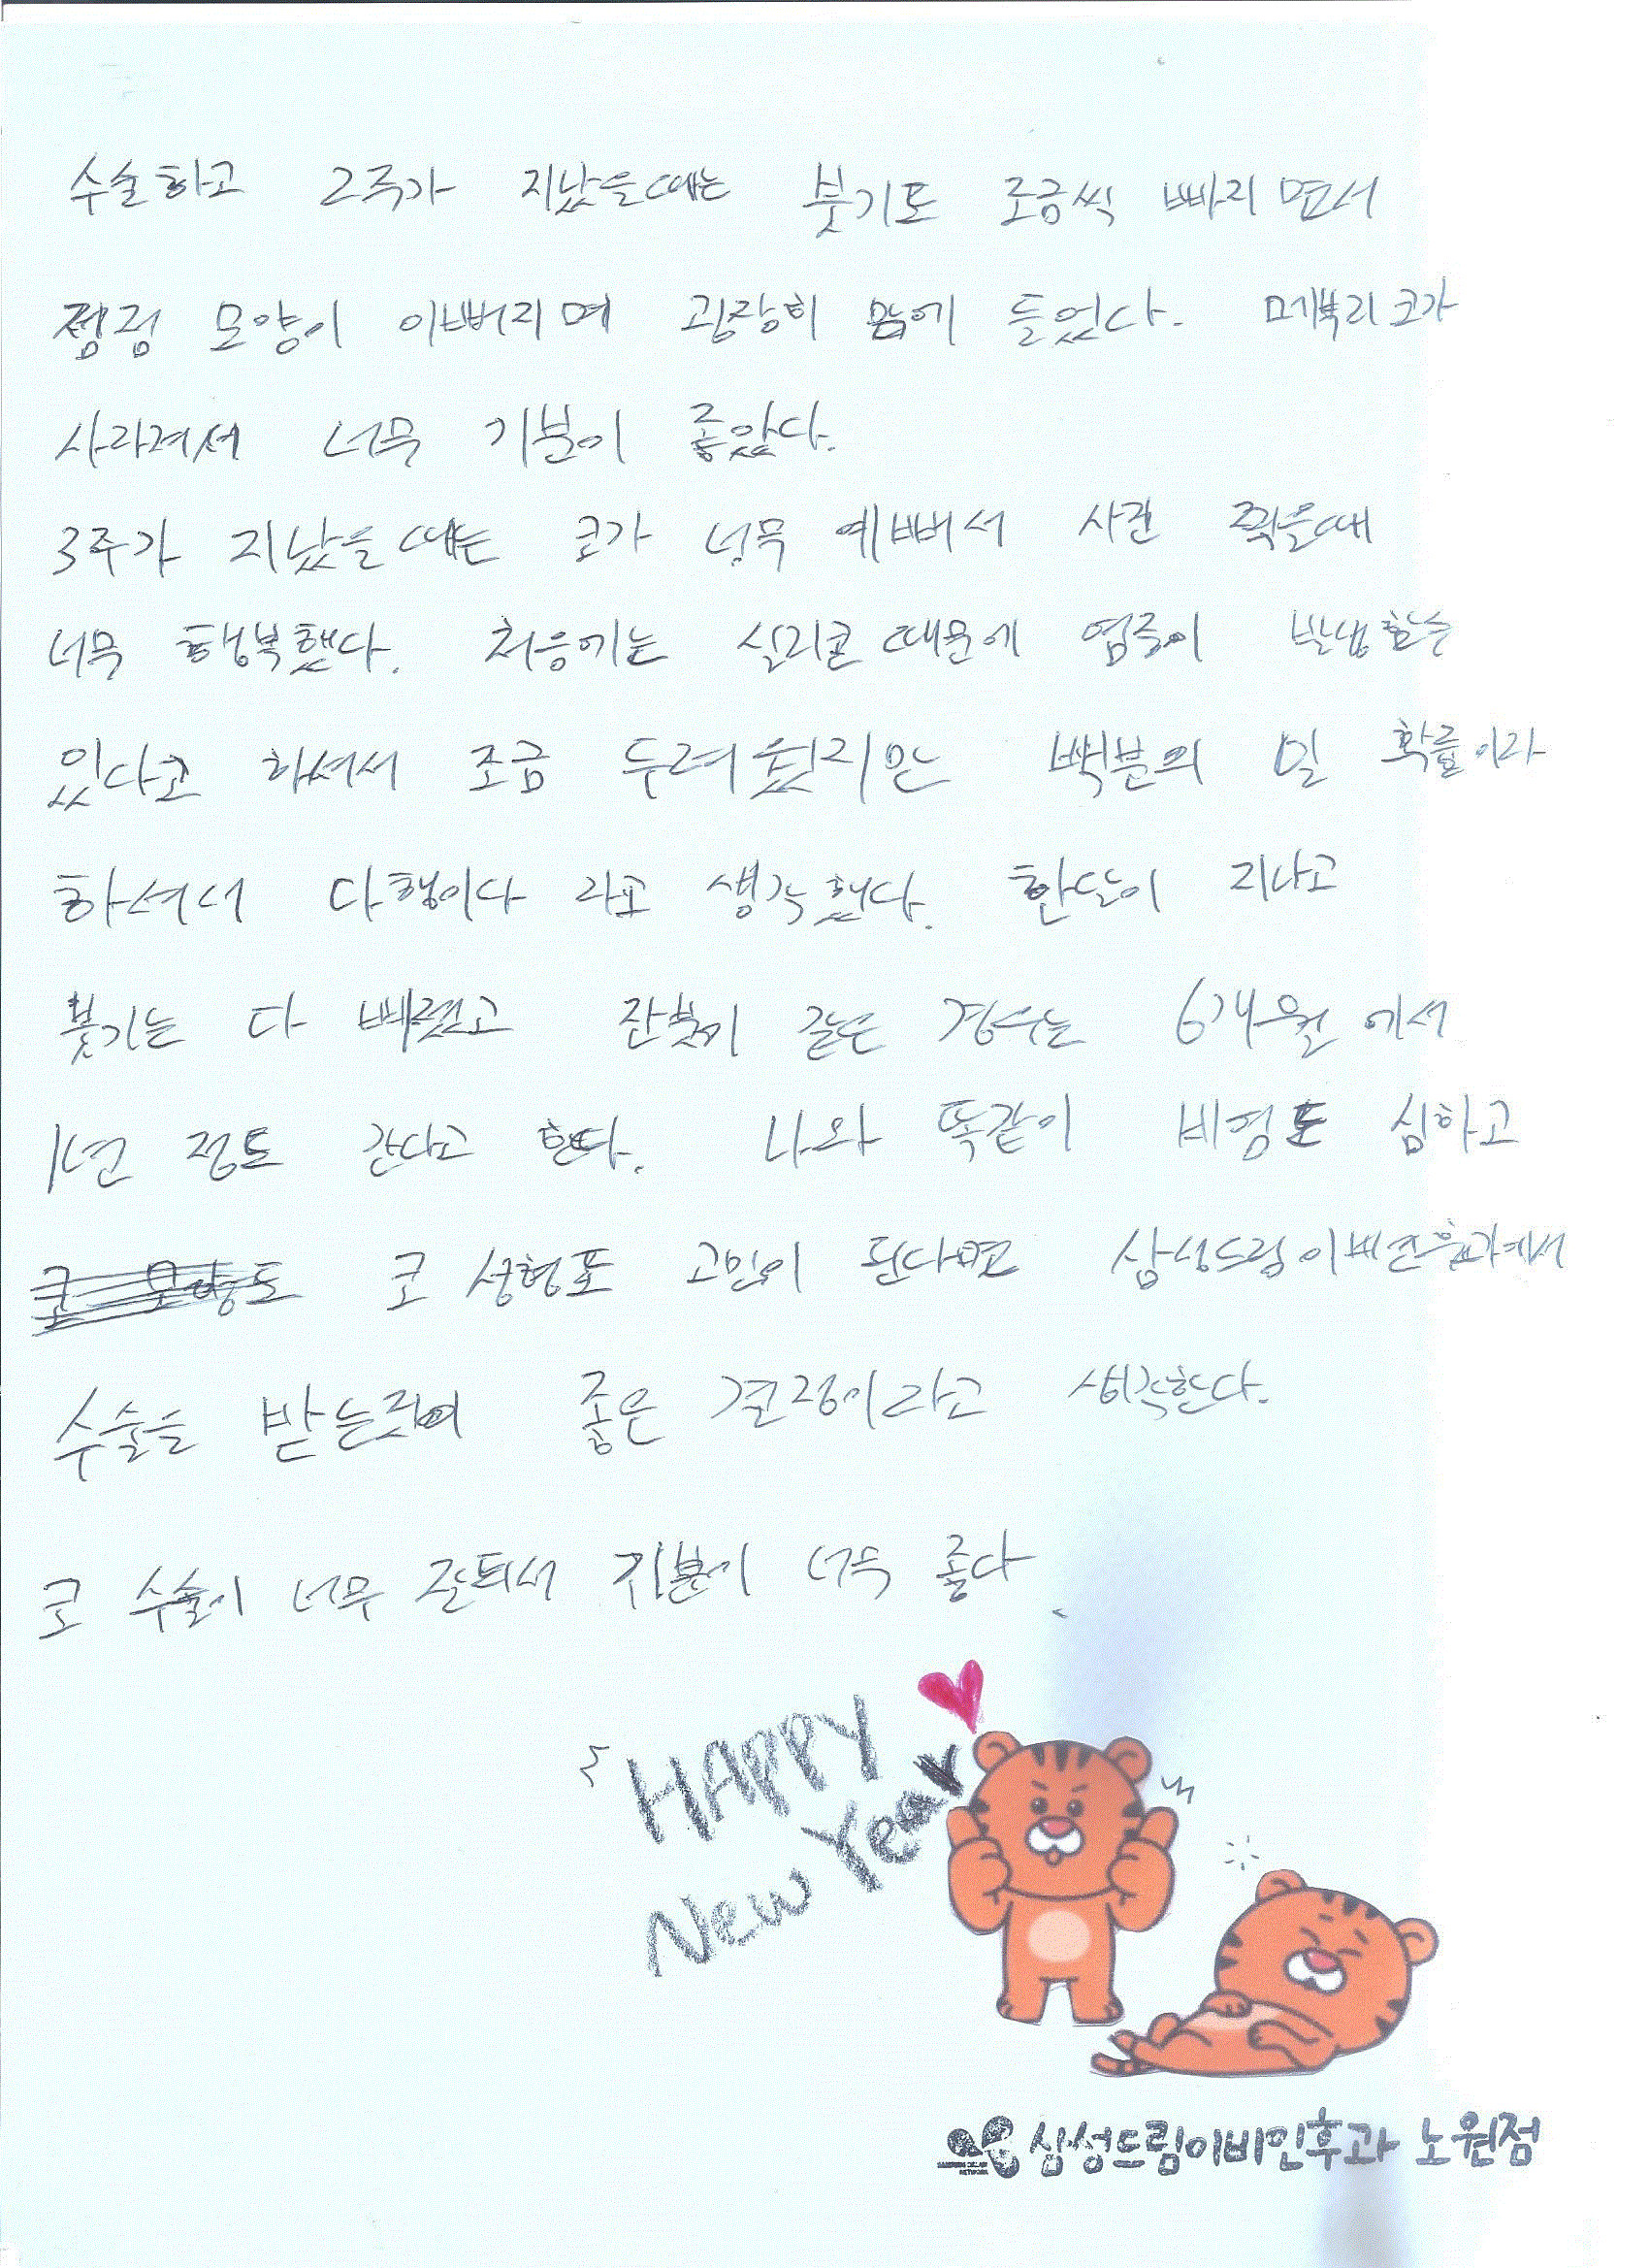 수술하고 2주가 지났을때는 붓기도 조금씩 빠지면서
점점 모양이 이뻐지며 굉장히 맘에 들었다. 메부리코가
사라져서 너무 기분이 좋았다.
3주가 지났을때는 코가 너무 예뻐서 사진 찍을때
너무 행복했다. 처음에는 실리콘 때문에 염증이 발생할수
있다고 하셔서 조금 두려웠지만 백분의 일 확률이라
하셔서 다행이다 라고 생각했다. 한달이 지나고
붓기는 다 빠졌고 잔붓기 같은 경우는 6개월에서
1년 정도 간다고 한다. 나와 똑같이 비염도 심하고
코 모양도 코 성형도 고민이 된다면 삼성드림이비인후과에서
수술을 받는것이 좋은 결정이라고 생각한다.
코 수술이 너무 잘되서 기분이 너무 좋다.
HAPPY
New Year
삼성드림이비인후과 노원점